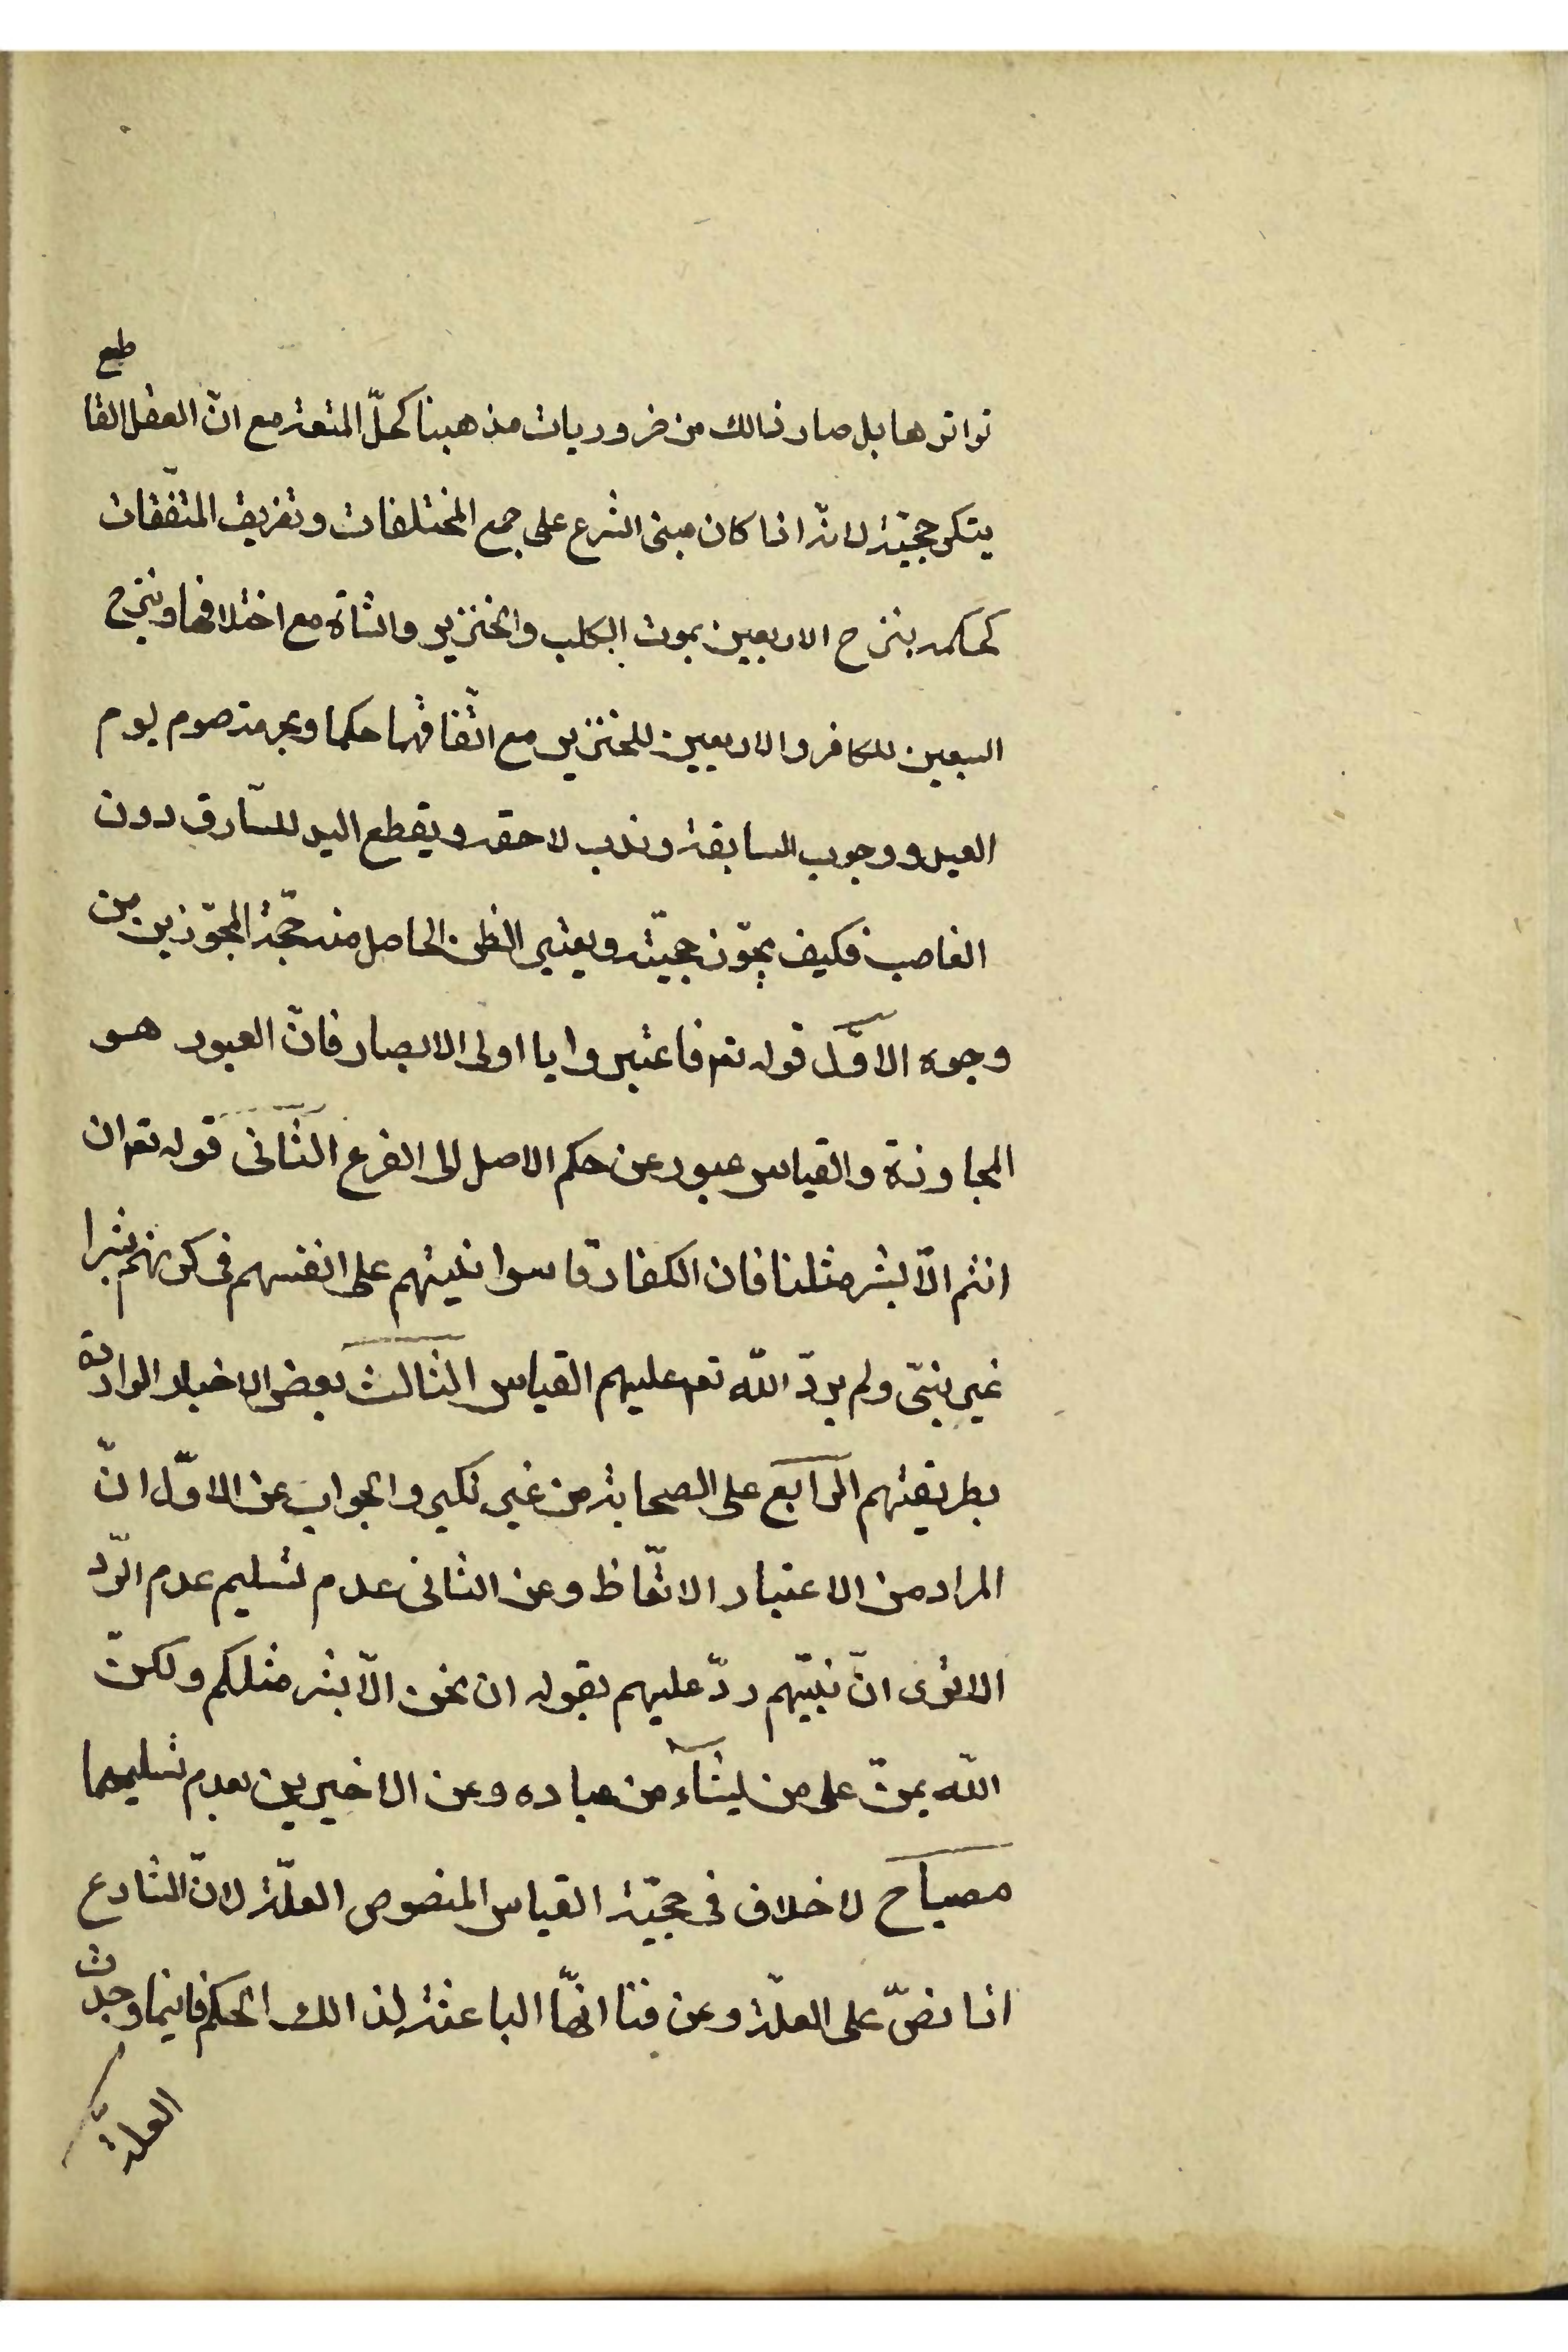 تواترها بل صار ذالك من ضروريات مذهبنا كحلّ المتعة مع انّ العقل القاطع
ينكر حجيّة لانّه اذا كان مبنى الشرع على جمع المختلفات وتفريق المتّفقات
كحكمه بنزح الاربعين بموت الكلب والخنزير والشاة مع اختلافها وبنزح
السبعين للكافر والاربعين للخنزير مع اتّفاقهما حكما وبحرمة صوم يوم
العيد ووجوب السابقة وندب لاحقه وبقطع اليد للسّارق دون
الغاصب فكيف يجوّز حجيّته ويعتبر الظن الحاصل منه حجّة المجوّزين من
وجوه الاوّل قوله تعم فاعتبروا يا اولى الابصار فانّ العبور هو
المجاوزة والقياس عبور عن حكم الاصل الى الفرع الثّانى قوله تعم ان
انتم الّا بشر مثلنا فان الكفار قاسوا نبيّهم على انفسهم فى كونهم بشرا
غير نبىّ ولم يردّ اللّه تعم عليهم القياس الثالث بعض الاخبار الواردة
بطريقتهم الرّابع على الصحابة من غير نكير والجواب عن الاوّل انّ
المراد من الاعتبار الاتّعاظ وعن الثانى عدم تسليم عدم الرّد
الا ترى انّ نبيّهم ردّ عليهم بقوله ان نحن الّا بشر مثلكم ولكنّ
اللّه يمنّ على من يشآء من عباده وعن الاخيرين بعدم تسليمهما
مصباح لا خلاف فى حجيّة القياس المنصوص العلّة لانّ الشارع
اذا نصّ على العلّة وعرفنا انّها الباعثة لذالك الحكم فاينما وجدت
العلّة